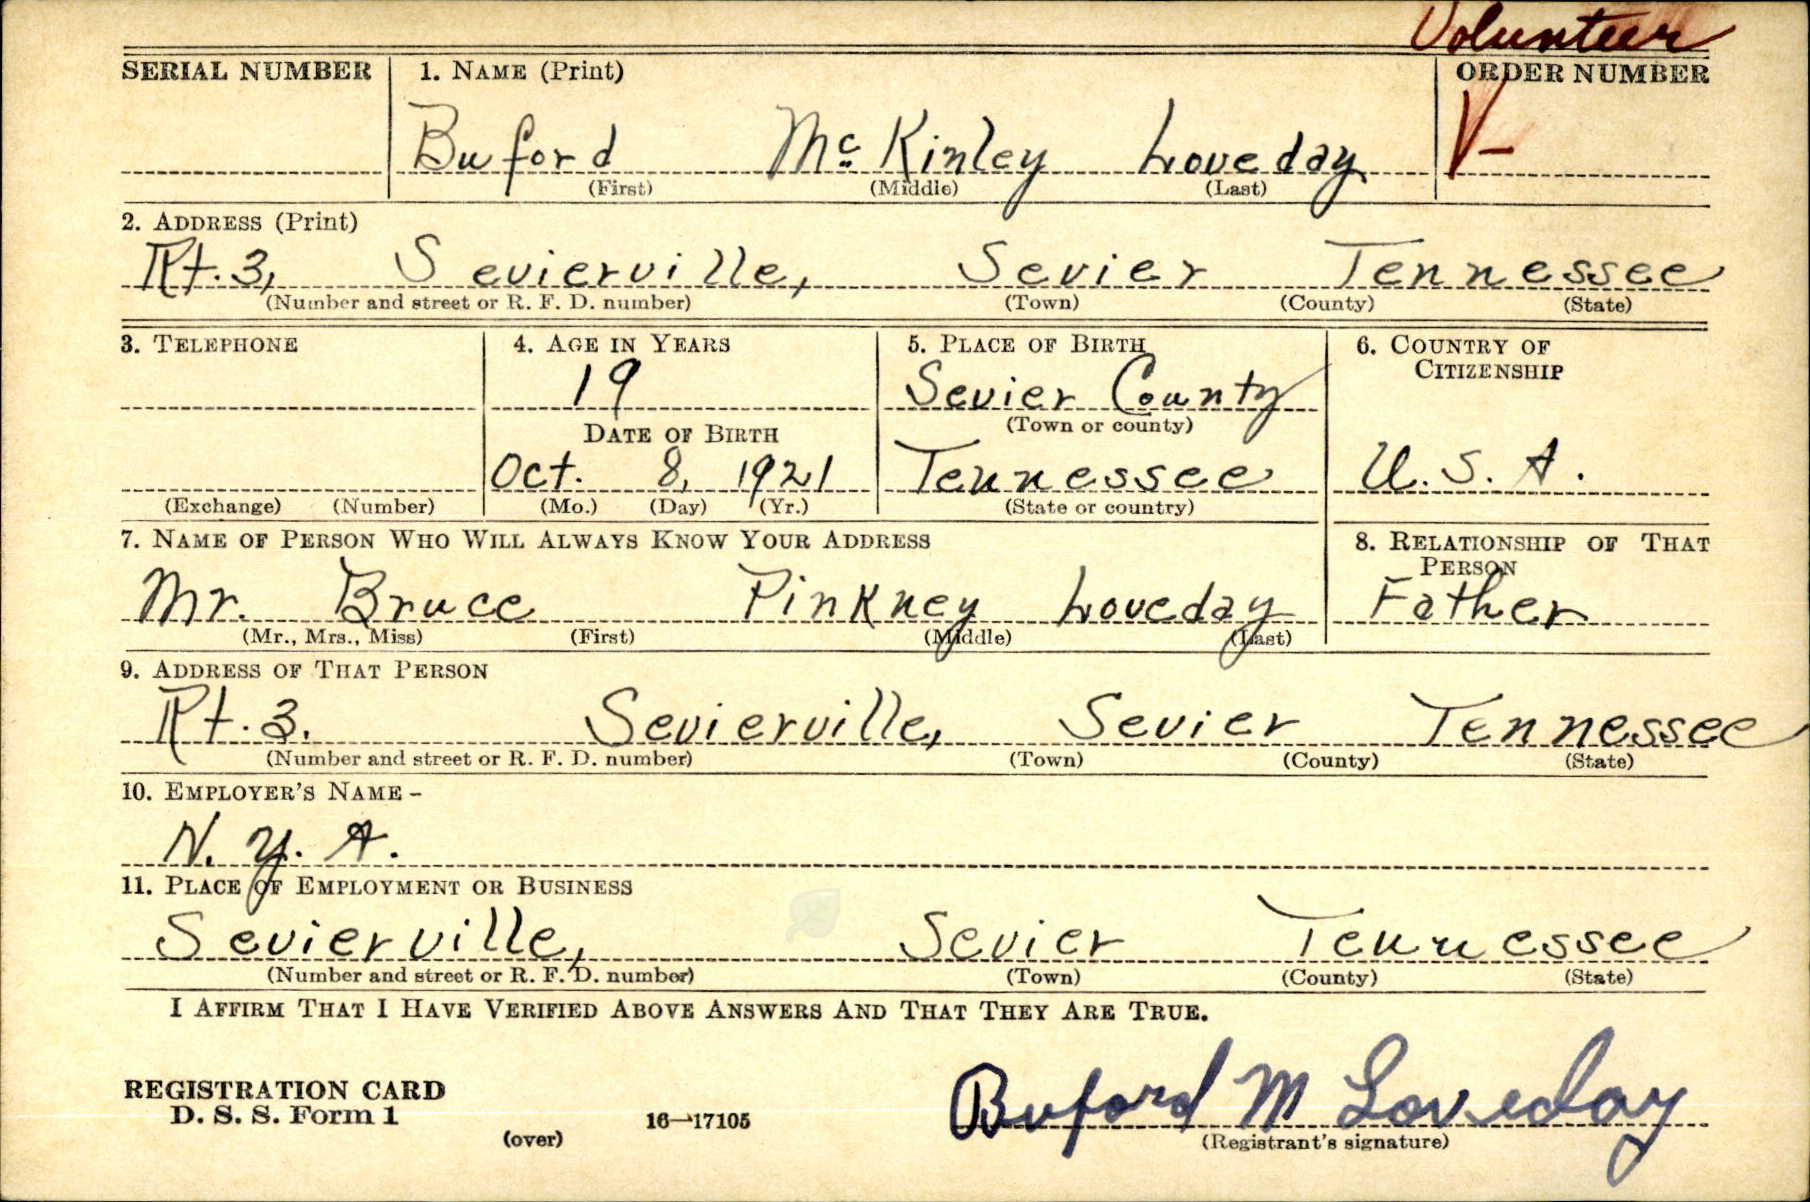 Volunteer
SERIAL NUMBER 1. NAME (Print) ORDER NUMBER
Buford McKinley Loveday V-
(First) (Middle) (Last)
2. ADDRESS (Print)
Rt. 3, Sevierville, Sevier Tennessee
(Number and street or R. F. D. number) (Town) (County) (State)
3. TELEPHONE 4. AGE IN YEARS 5. PLACE OF BIRTH 6. COUNTRY OF
CITIZENSHIP
19 Sevier County
(Town or county)
DATE OF BIRTH
Oct. 8, 1921 Tennessee U. S. A.
(Exchange) (Number) (Mo.) (Day) (Yr.) (State or country)
7. NAME OF PERSON WHO WILL ALWAYS KNOW YOUR ADDRESS 8. RELATIONSHIP OF THAT
PERSON
Mr. Bruce Pinkney Loveday Father
(Mr., Mrs., Miss) (First) (Middle) (Last)
9. ADDRESS OF THAT PERSON
Rt. 3. Sevierville, Sevier Tennessee
(Number and street or R. F. D. number) (Town) (County) (State)
10. EMPLOYER'S NAME -
N. Y. A.
11. PLACE OF EMPLOYMENT OR BUSINESS
Sevierville, Sevier Tennessee
(Number and street or R. F. D. number) (Town) (County) (State)
I AFFIRM THAT I HAVE VERIFIED ABOVE ANSWERS AND THAT THEY ARE TRUE.
REGISTRATION CARD
D. S. S. Form 1 16—17105 Buford M Loveday
(over) (Registrant's signature)